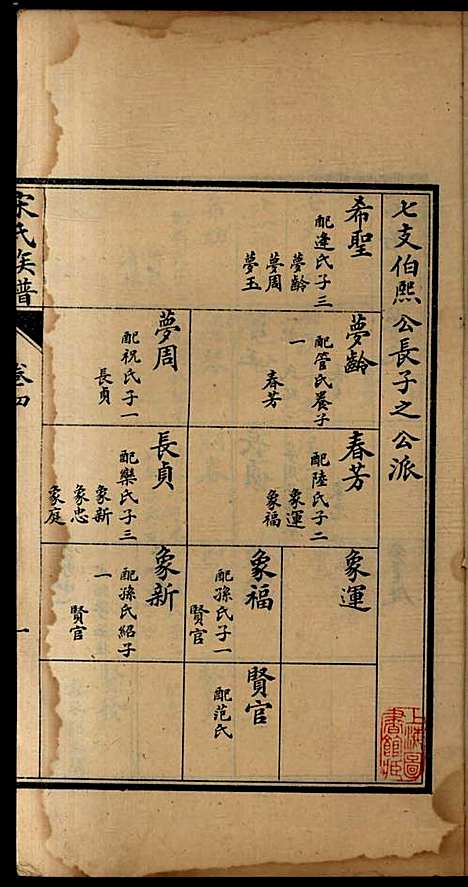 七支伯熙公長子之公派
希聖
配逄氏子三
夢齡
夢周
夢玉
夢齡
配管氏養子
一
春芳
春芳
配陸氏子二
象運
象福
象運
象福
配孫氏子一
賢官
賢官
配范氏
夢周
配祝氏子一
長貞
長貞
配欒氏子三
象新
象忠
象庭
象新
配孫氏紹子
一
賢官
宋氏族譜
卷四
一
上海圖
書館臧